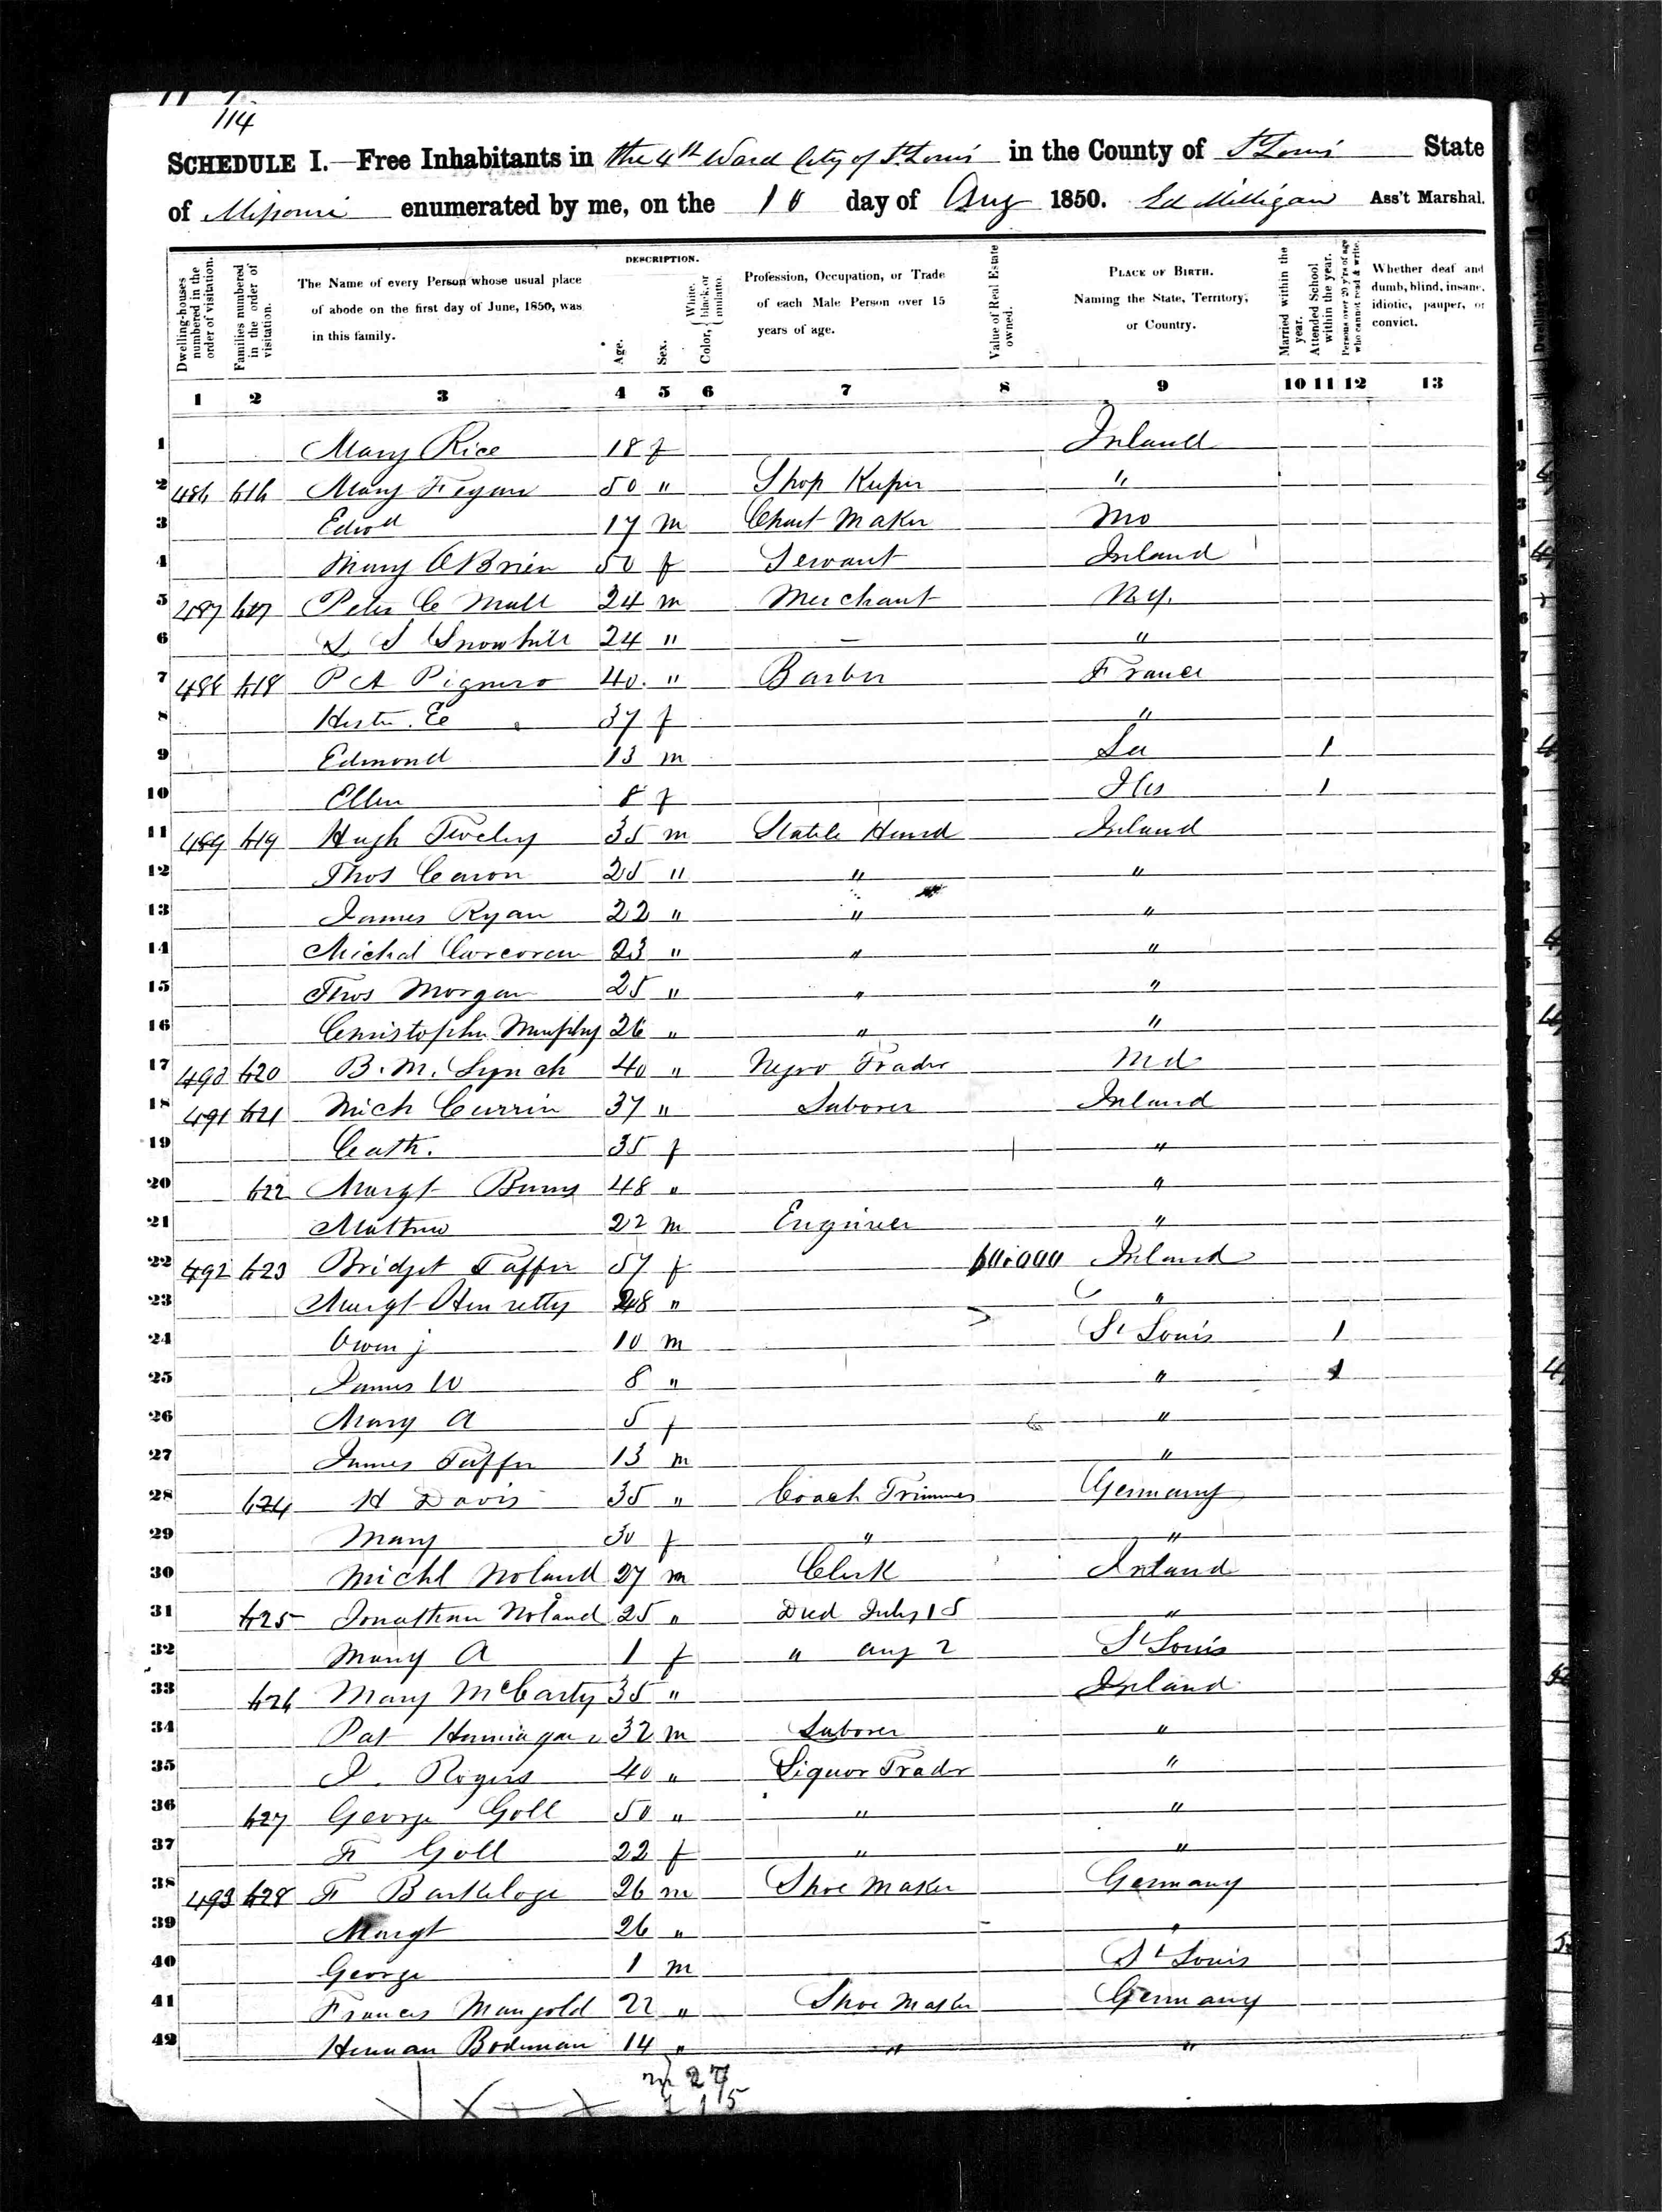 114
SCHEDULE I.—Free Inhabitants in the 4th Ward City of St. Louis in the County of St Louis State
of Missouri enumerated by me, on the 10 day of Aug 1850. Ed Milligan Ass't Marshal.
Dwelling-houses numbered in the order of visitation.
Families numbered in the order of visitation.
The Name of every Person whose usual place of abode on the first day of June, 1850, was in this family.
DESCRIPTION.
Age.
Sex.
Color, { White, black, or mulatto.
Profession, Occupation, or Trade of each Male Person over 15 years of age.
Value of Real Estate owned.
PLACE OF BIRTH. Naming the State, Territory, or Country.
Married within the year.
Attended School within the year.
Persons over 20 y'rs of age who cannot read & write.
Whether deaf and dumb, blind, insane, idiotic, pauper, or convict.
1 2 3 4 5 6 7 8 9 10 11 12 13
1 Mary Rice 18 f Ireland
2 486 616 Mary Fegan 50 " Shop Keeper "
3 Edwd 17 m Chart Maker Mo
4 Mary O'Brien 50 f Servant Ireland
5 487 617 Peter C Mull 24 m Merchant N.Y.
6 S Snowhill 24 " — "
7 488 618 P A 40 " Barber France
8 Hester E 37 f "
9 Edmond 13 m La 1
10 Ellen 8 f Ills 1
11 489 619 Hugh 35 m Stable Ireland
12 Thos 25 " " "
13 James Ryan 22 " " "
14 Michal Corcoran 23 " " "
15 Thos Morgan 25 " " "
16 Christopher Murphy 26 " " "
17 490 620 B. M. Lynch 40 " Negro Trader Md
18 491 621 Mich Currin 37 " Laborer Ireland
19 Cath. 35 f "
20 622 Margt Burns 48 " "
21 Mathew 22 m Engineer "
22 492 623 Bridget Taffer 57 f 60,000 Ireland
23 Margt Henretty 28 " "
24 Owen J 10 m St Louis 1
25 James W 8 " " 1
26 Mary A 5 f "
27 James Taffer 13 m "
28 624 H Davis 35 " Coach Trimmer Germany
29 Mary 30 f " "
30 Michl Noland 27 m Clerk Ireland
31 625 Jonathan Noland 25 " Died July 15 "
32 Mary A 1 f " Aug 2 St Louis
33 626 Mary McCarty 35 " Ireland
34 Pat 32 m Laborer "
35 J. Rogers 40 " Liquor Tradr "
36 627 George Goll 50 " " "
37 F Goll 22 f " "
38 493 628 F Barkloge 26 m Shoe Maker Germany
39 Margt 26 " "
40 George 1 m St Louis
41 Frances Mangold 22 " Shoe Maker Germany
42 Herman Bodeman 14 " " "
m 27
f 15